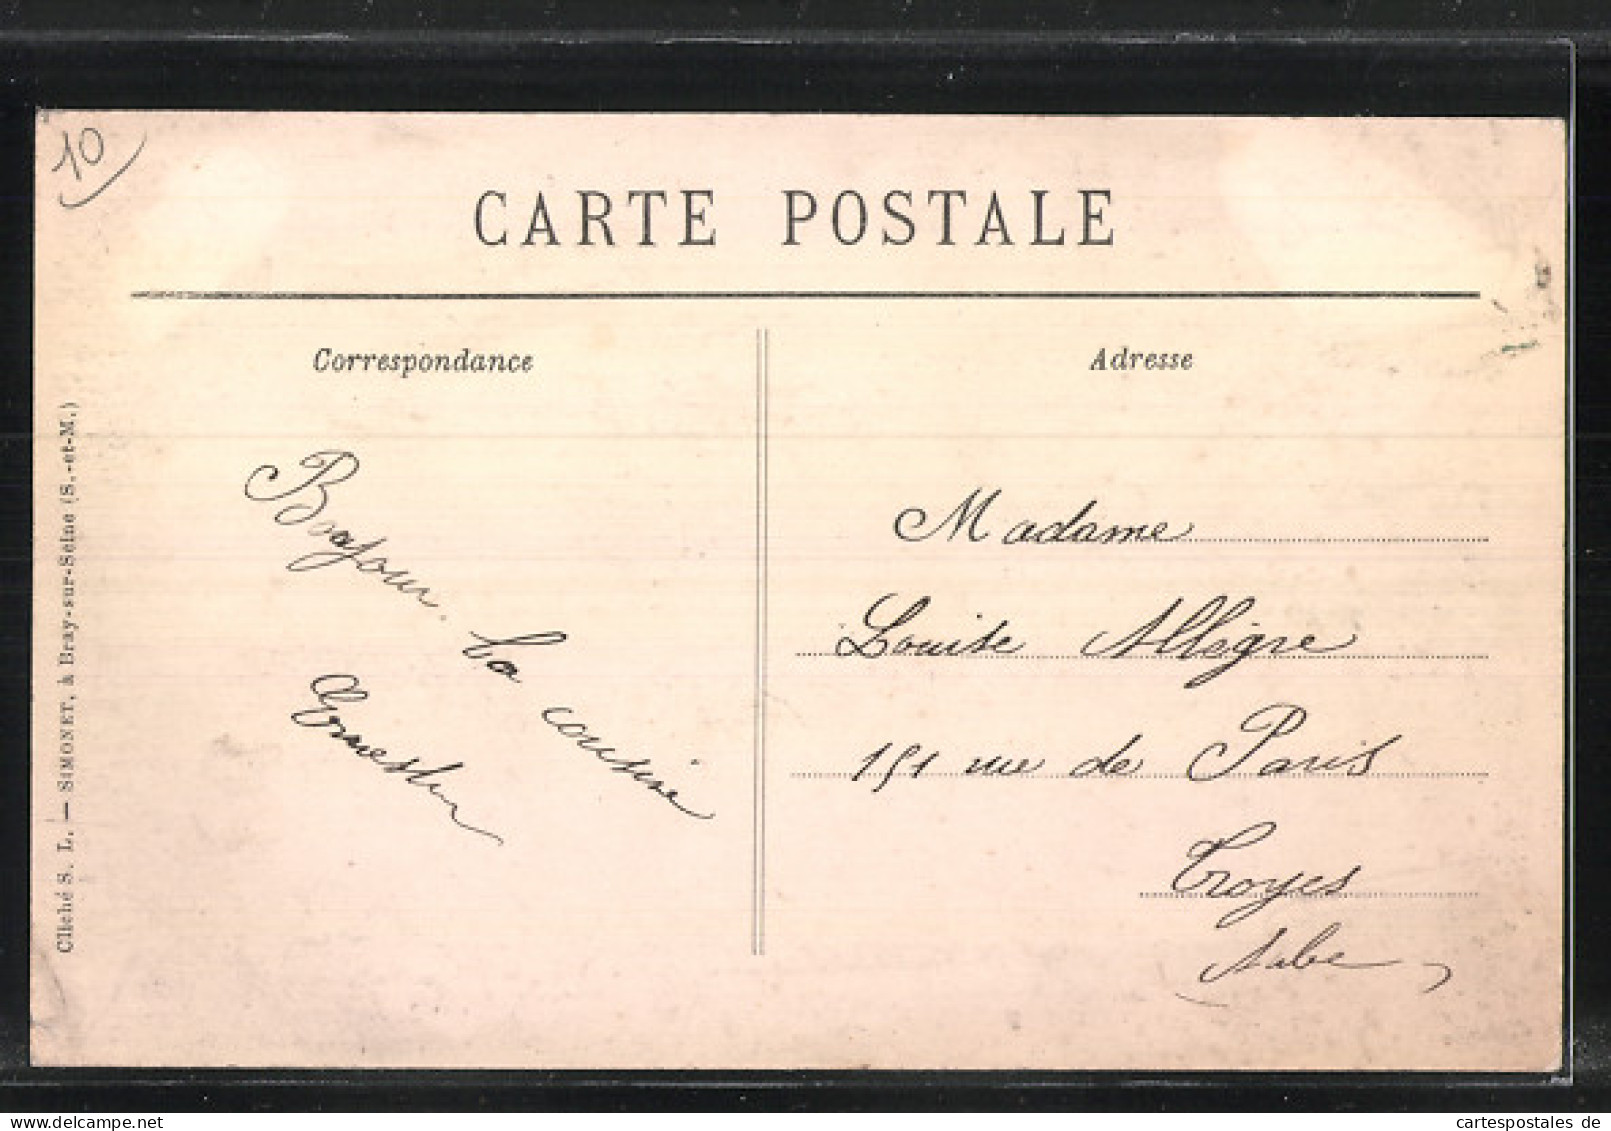 10
CARTE POSTALE
Correspondance
Adresse
Bonjour. ta cousine
Ernestin
Madame
Louise Allègre
151 rue de Paris
Troyes
Aube
Cliché S. L. — SIMONET, à Bray-sur-Seine (S.-et-M.)
cartespostales de